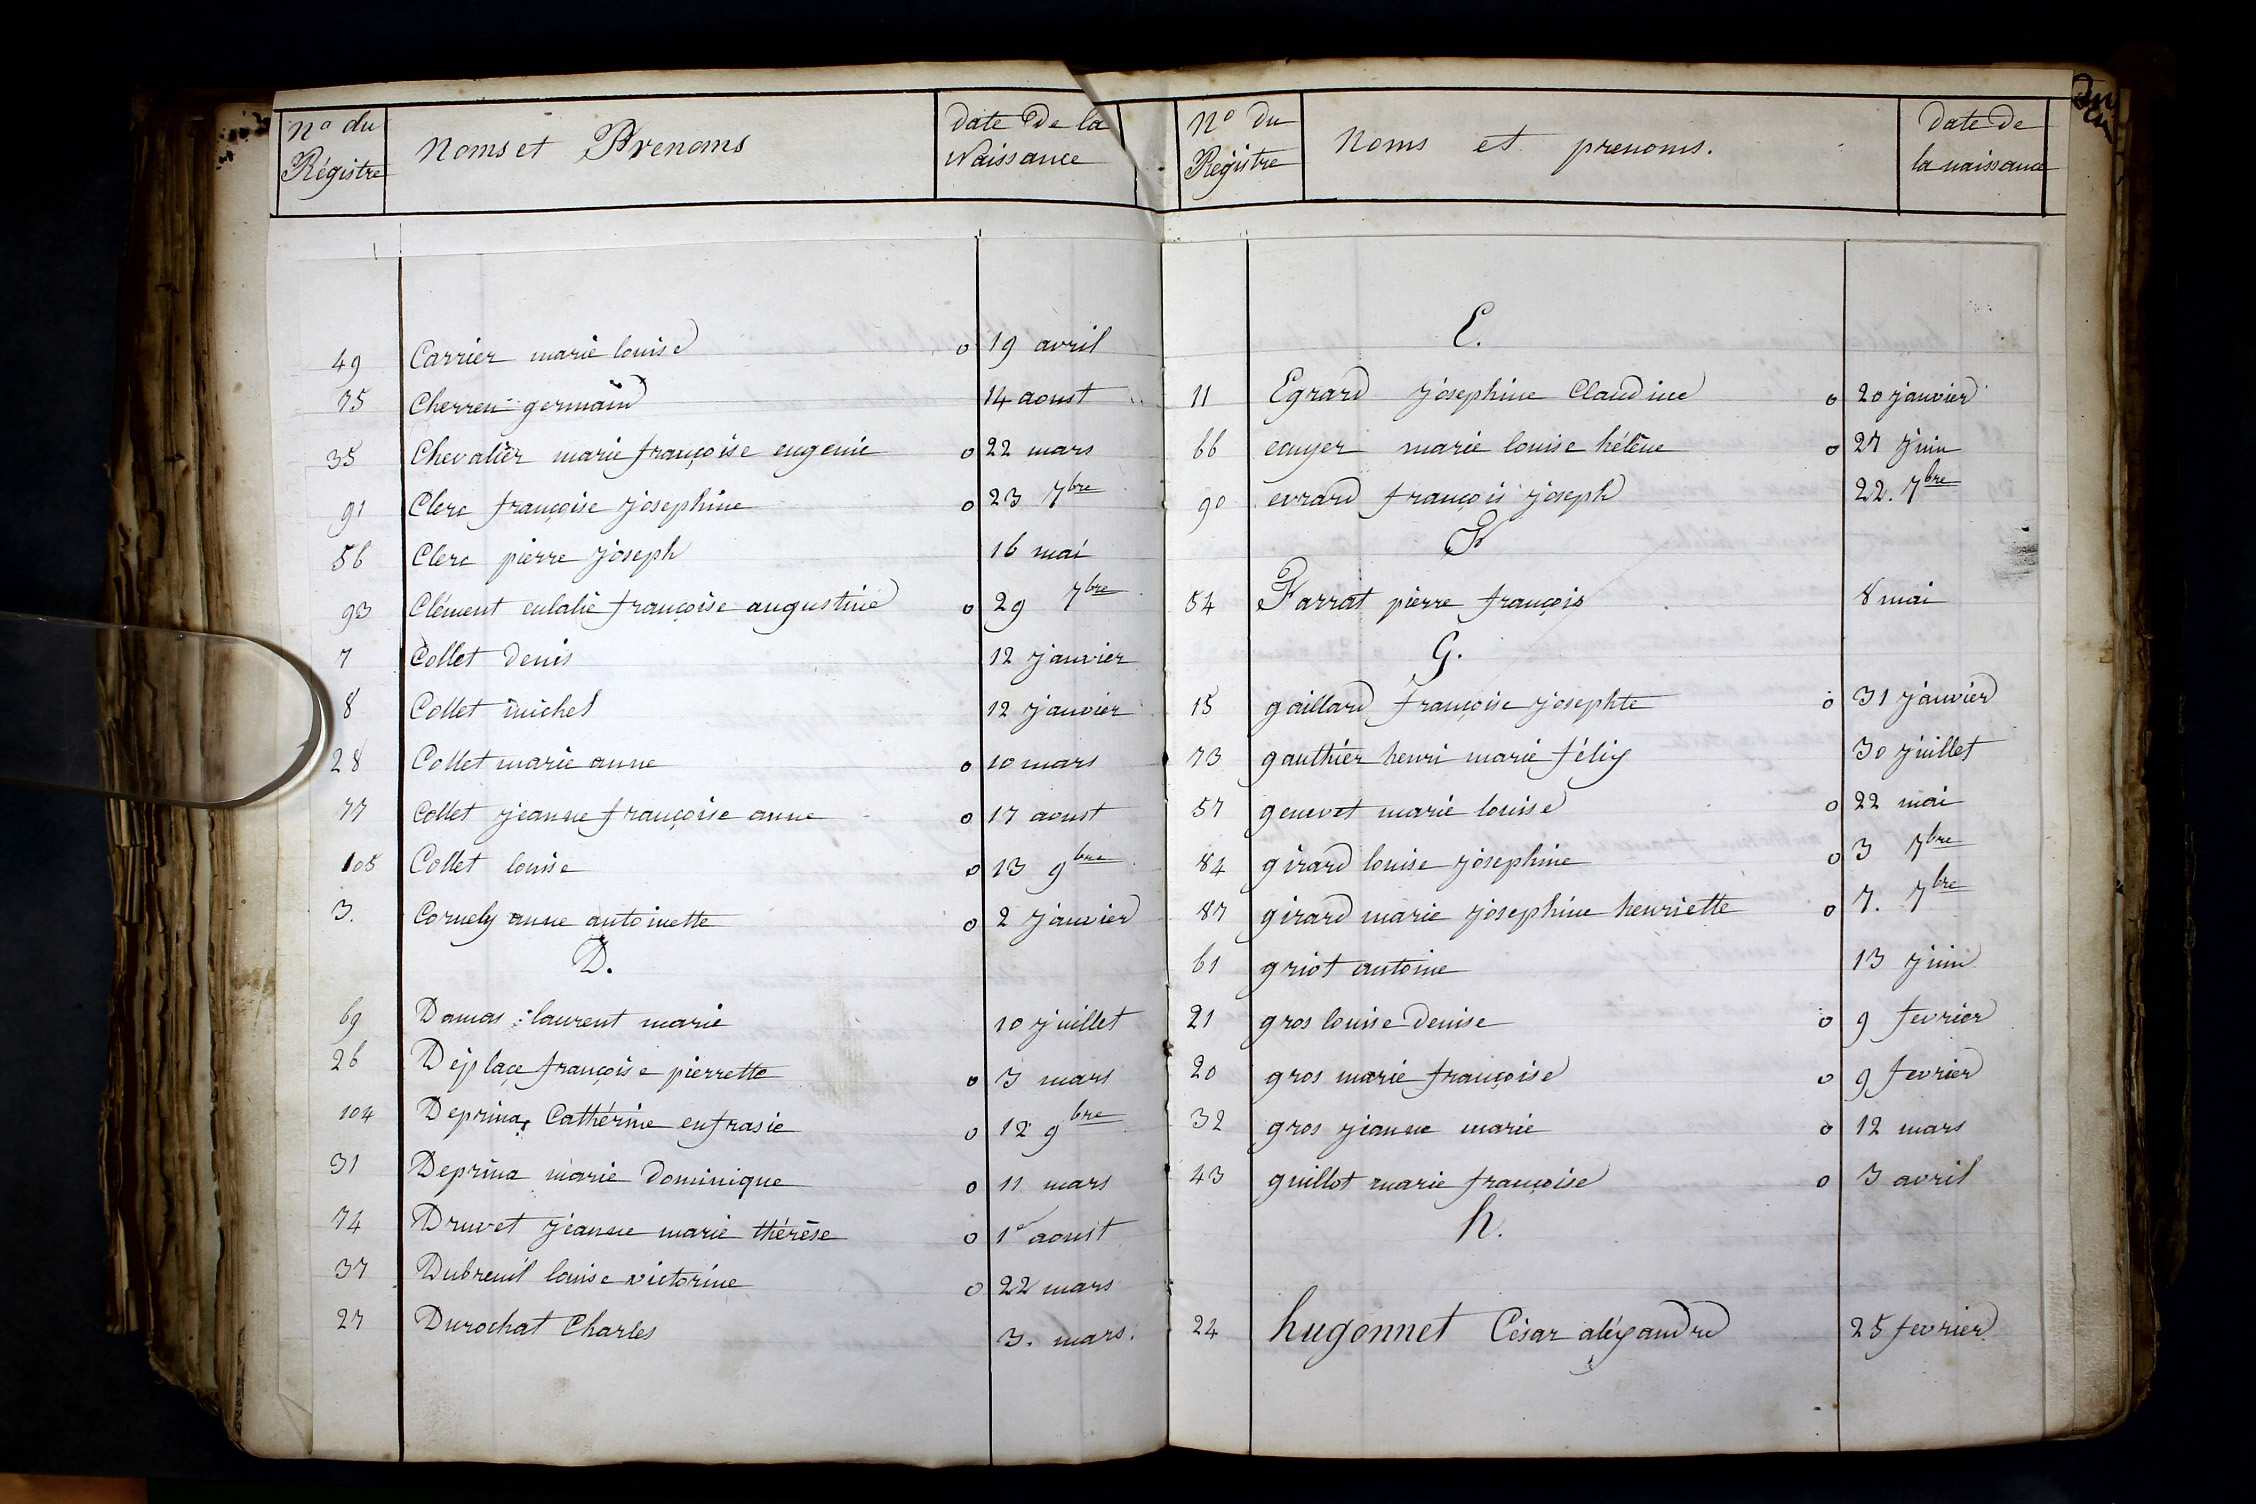 No du Régistre Noms et Prenoms date De la Naissance
49 Carrier marie louise o 19 avril
75 Cherreu germain 14 aoust
35 Chevalier marie françoise eugenie o 22 mars
91 Clerc françoise josephine o 23 7bre
56 Clerc pierre joseph 16 mai
93 Clément eulalie françoise augustine o 29 7bre
7 Collet denis 12 janvier
8 Collet michel 12 janvier
28 Collet marie anne o 10 mars
77 Collet jeanne françoise anne o 17 aoust
105 Collet louise o 13 9bre
3. Cornely anne antoinette o 2 janvier
D.
69 Damas laurent marie 10 juillet
26 Déplaçe françoise pierrette o 3 mars
104 Deprina Cathérine eufrasie o 12 9bre
31 Deprina marie Dominique o 11 mars
74 Druvet jeanne marie thérèse o 1er aoust
37 Dubreuil louise victorine o 22 mars
27 Durochat Charles 3. mars.
No du Régistre Noms et prenoms. Date de la naissance
E.
11 Egrard josephine Claudine o 20 janvier
66 eauyer marie louise hélène o 27 juin
90 evrard françois joseph 22. 7bre
F
54 Farrat pierre françois 8 mai
G.
15 gaillard françoise josephte o 31 janvier
73 gauthier henri marie félix 30 juillet
57 genevet marie louise o 22 mai
84 girard louise josephine o 3 7bre
87 girard marie josephine henriette o 7. 7bre
61 griot antoine 13 juin
21 gros louise denise o 9 fevrier
20 gros marie françoise o 9 fevrier
32 gros jeanne marie o 12 mars
43 guillot marie françoise o 3 avril
h.
24 hugonnet César aléxandre 25 fevrier